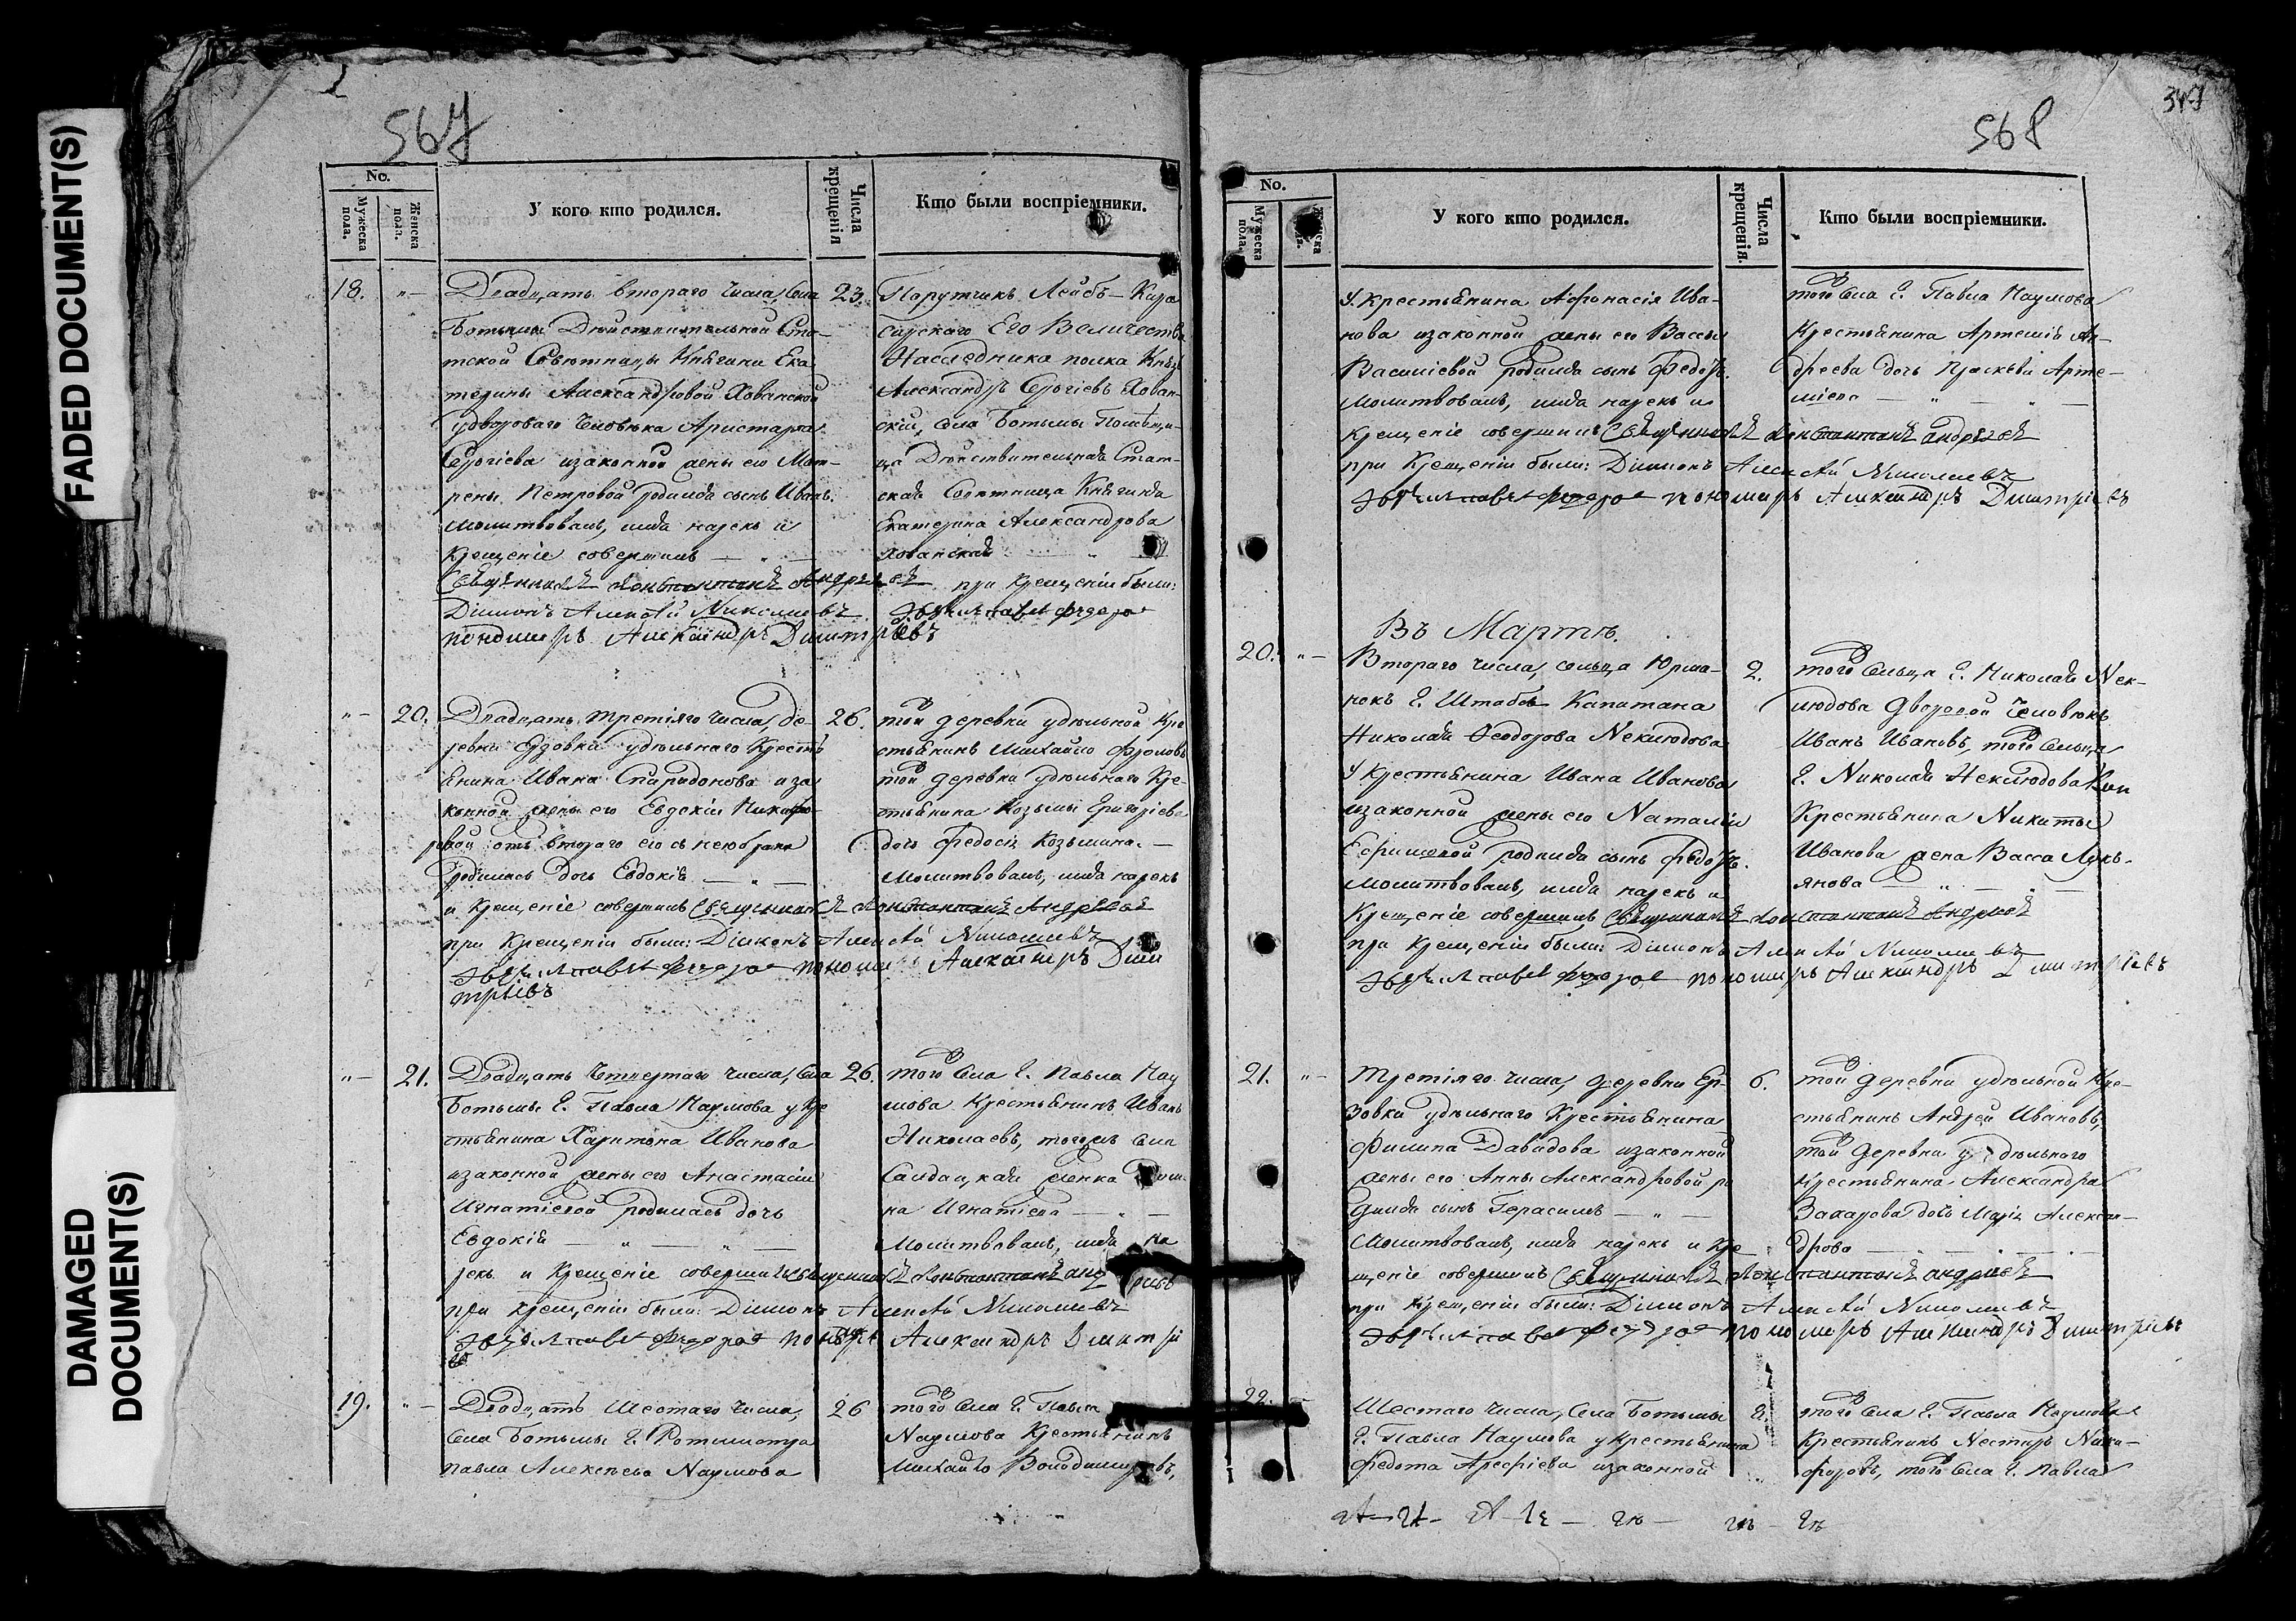 FADED DOCUMENT(S)
DAMAGED DOCUMENT(S)
567
No.
Мужеска пола.
Женска пола.
У кого кто родился.
Числа крещенія
Кто были воспріемники.
18.
Двадцать втораго числа, села
Ботьмы Дѣйствительной Ста-
тской Совѣтницы Княгини Ека-
терины Александровой Хованской
удвороваго человѣка Аристарха
Сергіева изаконной жены его Мат-
рены Петровой родился сынъ Иванъ.
молитвовалъ, имя нарекъ и
крещеніе совершилъ
Священникъ Константинъ Андреевъ при крещеніи были:
Діаконъ Алексѣй Николаевъ
пономарь Александръ Димитріевъ
23.
Порутчикъ Лейбъ-Кира
сирскаго Его Величества
Наслѣдника полка Князь
Александръ Сергіевъ Хован-
скій, села Ботьмы Помѣщи-
ца Дѣйствительная Стат-
ская Совѣтница Княгиня
Екатерина Александрова
Хованская
20.
Двадцать третіяго числа, де-
ревни удѣльнаго Кресть
янина Ивана Спиридонова иза
конной жены его Евдокіи Никифо-
ровой отъ втораго его съ нею брака
родилась дочь Евдокія
26.
той деревни удѣльной Кре
стьянинъ Михайло Фроловъ
той деревни удѣльнаго Кре-
стьянина Козьмы Григоріева
дочь Федосья Козьмина.
молитвовалъ, имя нарекъ
и крещеніе совершилъ Священникъ Константинъ Андреевъ
при крещеніи были: Діаконъ Алексѣй Николаевъ
пономарь Александръ Дими
тріевъ
21.
Двадцать Четвертаго числа, села
Ботьмы Г. Павла Наумова у Кре
стьянина Харитона Иванова
изаконной жены его Анастасіи
Игнатіевой родилась дочь
Евдокія
26.
того села Г. Павла Нау
мова крестьянинъ Иванъ
Николаевъ, тогожъ села
Салдацкая женка
на Игнатіева
Молитвовалъ, имя на
рекъ и крещеніе совершилъ Священникъ Константинъ Андреевъ
при крещеніи были: Діаконъ Алексѣй Николаевъ
Александръ Димитрі
19.
Двадцать шестаго числа,
села Ботьмы Г. Ротмистра
Павла Алексѣева Наумова
26
того села Г. Павла
Наумова Крестьянинъ
Михайло Володимировъ,
568
No.
Мужеска пола.
У кого кто родился.
Числа крещенія.
Кто были воспріемники.
у крестьянина Афонасія Ива-
нова изаконной жены его Вассы
Василіевой родился сынъ Федоръ.
молитвовалъ, имя нарекъ и
крещеніе совершилъ Священникъ Константинъ Андреевъ
при крещеніи были: Діаконъ Алексѣй Николаевъ
пономарь Александръ Димитріевъ
того села Г. Павла Наумова
Крестьянина Артемія Ан-
дреева дочь Прасковія Арте-
міева
Въ Мартѣ.
20.
Втораго числа, сельца Юрма-
нокъ Г. Штабсъ Капитана
Николая Феодорова Неклюдова
у крестьянина Ивана Иванова
изаконной жены его Наталіи
Ефимовой родился сынъ Федоръ.
молитвовалъ, имя нарекъ и
крещеніе совершилъ Священникъ Константинъ Андреевъ
при крещеніи были: Діаконъ Алексѣй Николаевъ
пономарь Александръ Димитріевъ
2.
того сельца Г. Николая Нек-
людова дворовой человѣкъ
Иванъ Ивановъ, того сельца
Г. Николая Неклюдова
Крестьянина Никиты
Иванова жена Васса Лукь-
янова
21.
Третіяго числа, деревни Ер-
зовки удѣльнаго Крестьянина
Филипа Давидова изаконной
жены его Анны Александровой ро
дился сынъ Герасимъ
Молитвовалъ, имя нарекъ и кре
щеніе совершилъ Священникъ Константинъ Андреевъ
при крещеніи были: Діаконъ Алексѣй Николаевъ
пономарь Александръ Димитріевъ
6.
той деревни удѣльной Кре-
стьянинъ Андрей Ивановъ,
той деревни удѣльнаго
крестьянина Александра
Захарова дочь Марія Алексан-
дрова
22.
Шестаго числа, села Ботьмы
Г. Павла Наумова у крестьянина
Федота Арефіева изаконной
того села Г. Павла Наумова
Крестьянинъ Несторъ Ники-
форовъ, того села Г. Павла